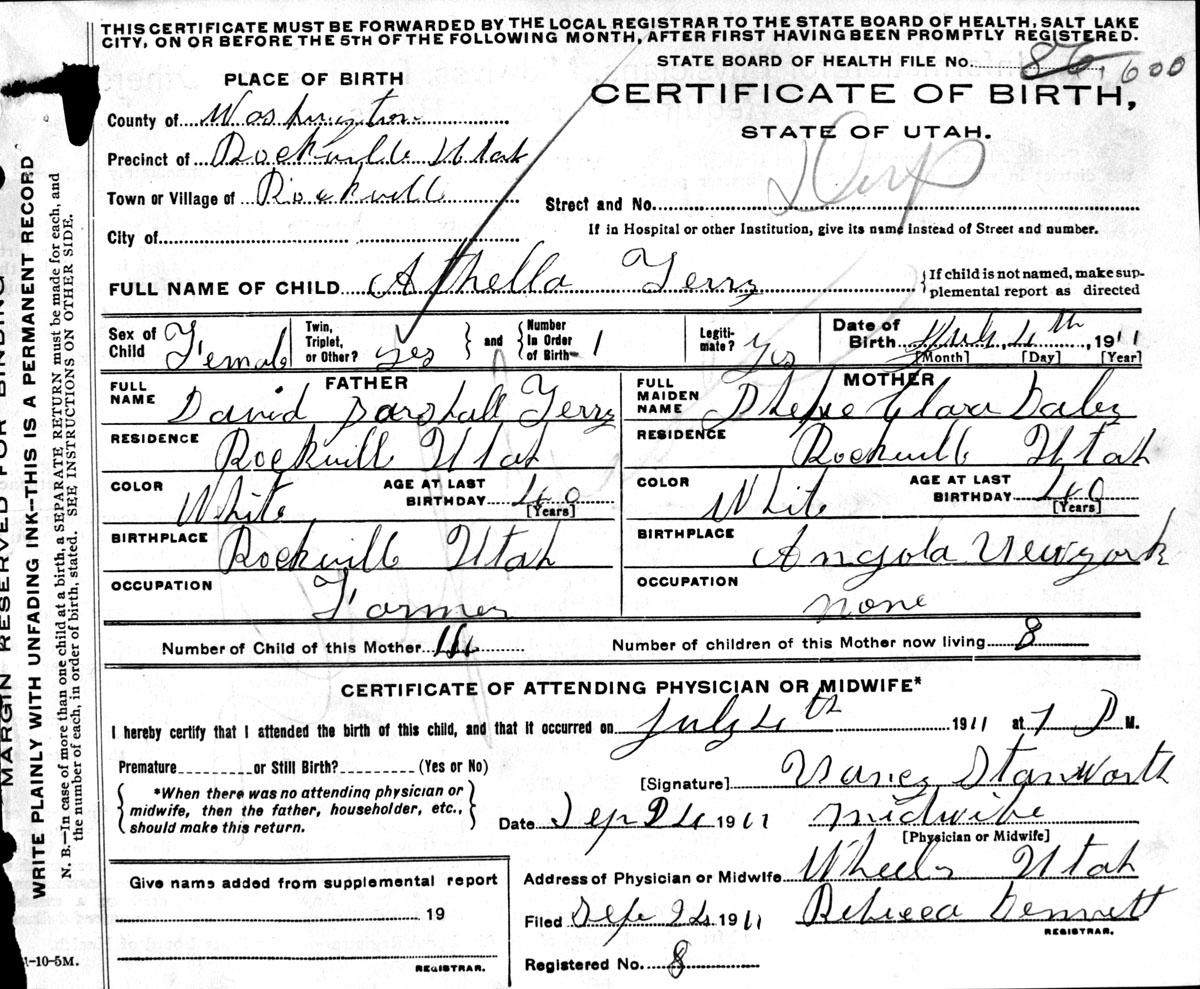 THIS CERTIFICATE MUST BE FORWARDED BY THE LOCAL REGISTRAR TO THE STATE BOARD OF HEALTH, SALT LAKE
CITY, ON OR BEFORE THE 5TH OF THE FOLLOWING MONTH, AFTER FIRST HAVING BEEN PROMPTLY REGISTERED.
STATE BOARD OF HEALTH FILE No. 86, 600
PLACE OF BIRTH
CERTIFICATE OF BIRTH,
STATE OF UTAH.
County of Washington
Precinct of Rockville Utah
Dup
Town or Village of Rockvill
Street and No.
City of
If in Hospital or other Institution, give its name instead of Street and number.
FULL NAME OF CHILD Athella Terry
{If child is not named, make sup-
plemental report as directed
Sex of Child Female
Twin, Triplet, or Other? yes
} and {
Number In Order of Birth 1
Legiti-mate? yes
Date of Birth July 4th, 1911
[Month] [Day] [Year]
FATHER
MOTHER
FULL NAME David Marshall Terry
FULL MAIDEN NAME Clara
RESIDENCE Rockvill Utah
RESIDENCE Rockvill Utah
COLOR White
AGE AT LAST BIRTHDAY 40
[Years]
COLOR White
AGE AT LAST BIRTHDAY 40
[Years]
BIRTHPLACE Rockvill Utah
BIRTHPLACE Angola Newyork
OCCUPATION Farmer
OCCUPATION none
Number of Child of this Mother
Number of children of this Mother now living 8
CERTIFICATE OF ATTENDING PHYSICIAN OR MIDWIFE*
I hereby certify that I attended the birth of this child, and that it occurred on July 4th 1911 at 7 P M.
Premature or Still Birth? (Yes or No)
[Signature] Nancy Stanworth
{ *When there was no attending physician or
midwife, then the father, householder, etc.,
should make this return. }
Date Sep 24 1911 midwife
[Physician or Midwife]
Address of Physician or Midwife Wheeler Utah
Give name added from supplemental report
19
Filed Sep 24 1911 Rebecca Dennett
REGISTRAR.
REGISTRAR.
Registered No. 8
1-10-5M.
MARGIN RESERVED FOR BINDING
WRITE PLAINLY WITH UNFADING INK—THIS IS A PERMANENT RECORD
N. B.—In case of more than one child at a birth, a SEPARATE RETURN must be made for each, and
the number of each, in order of birth, stated. SEE INSTRUCTIONS ON OTHER SIDE.